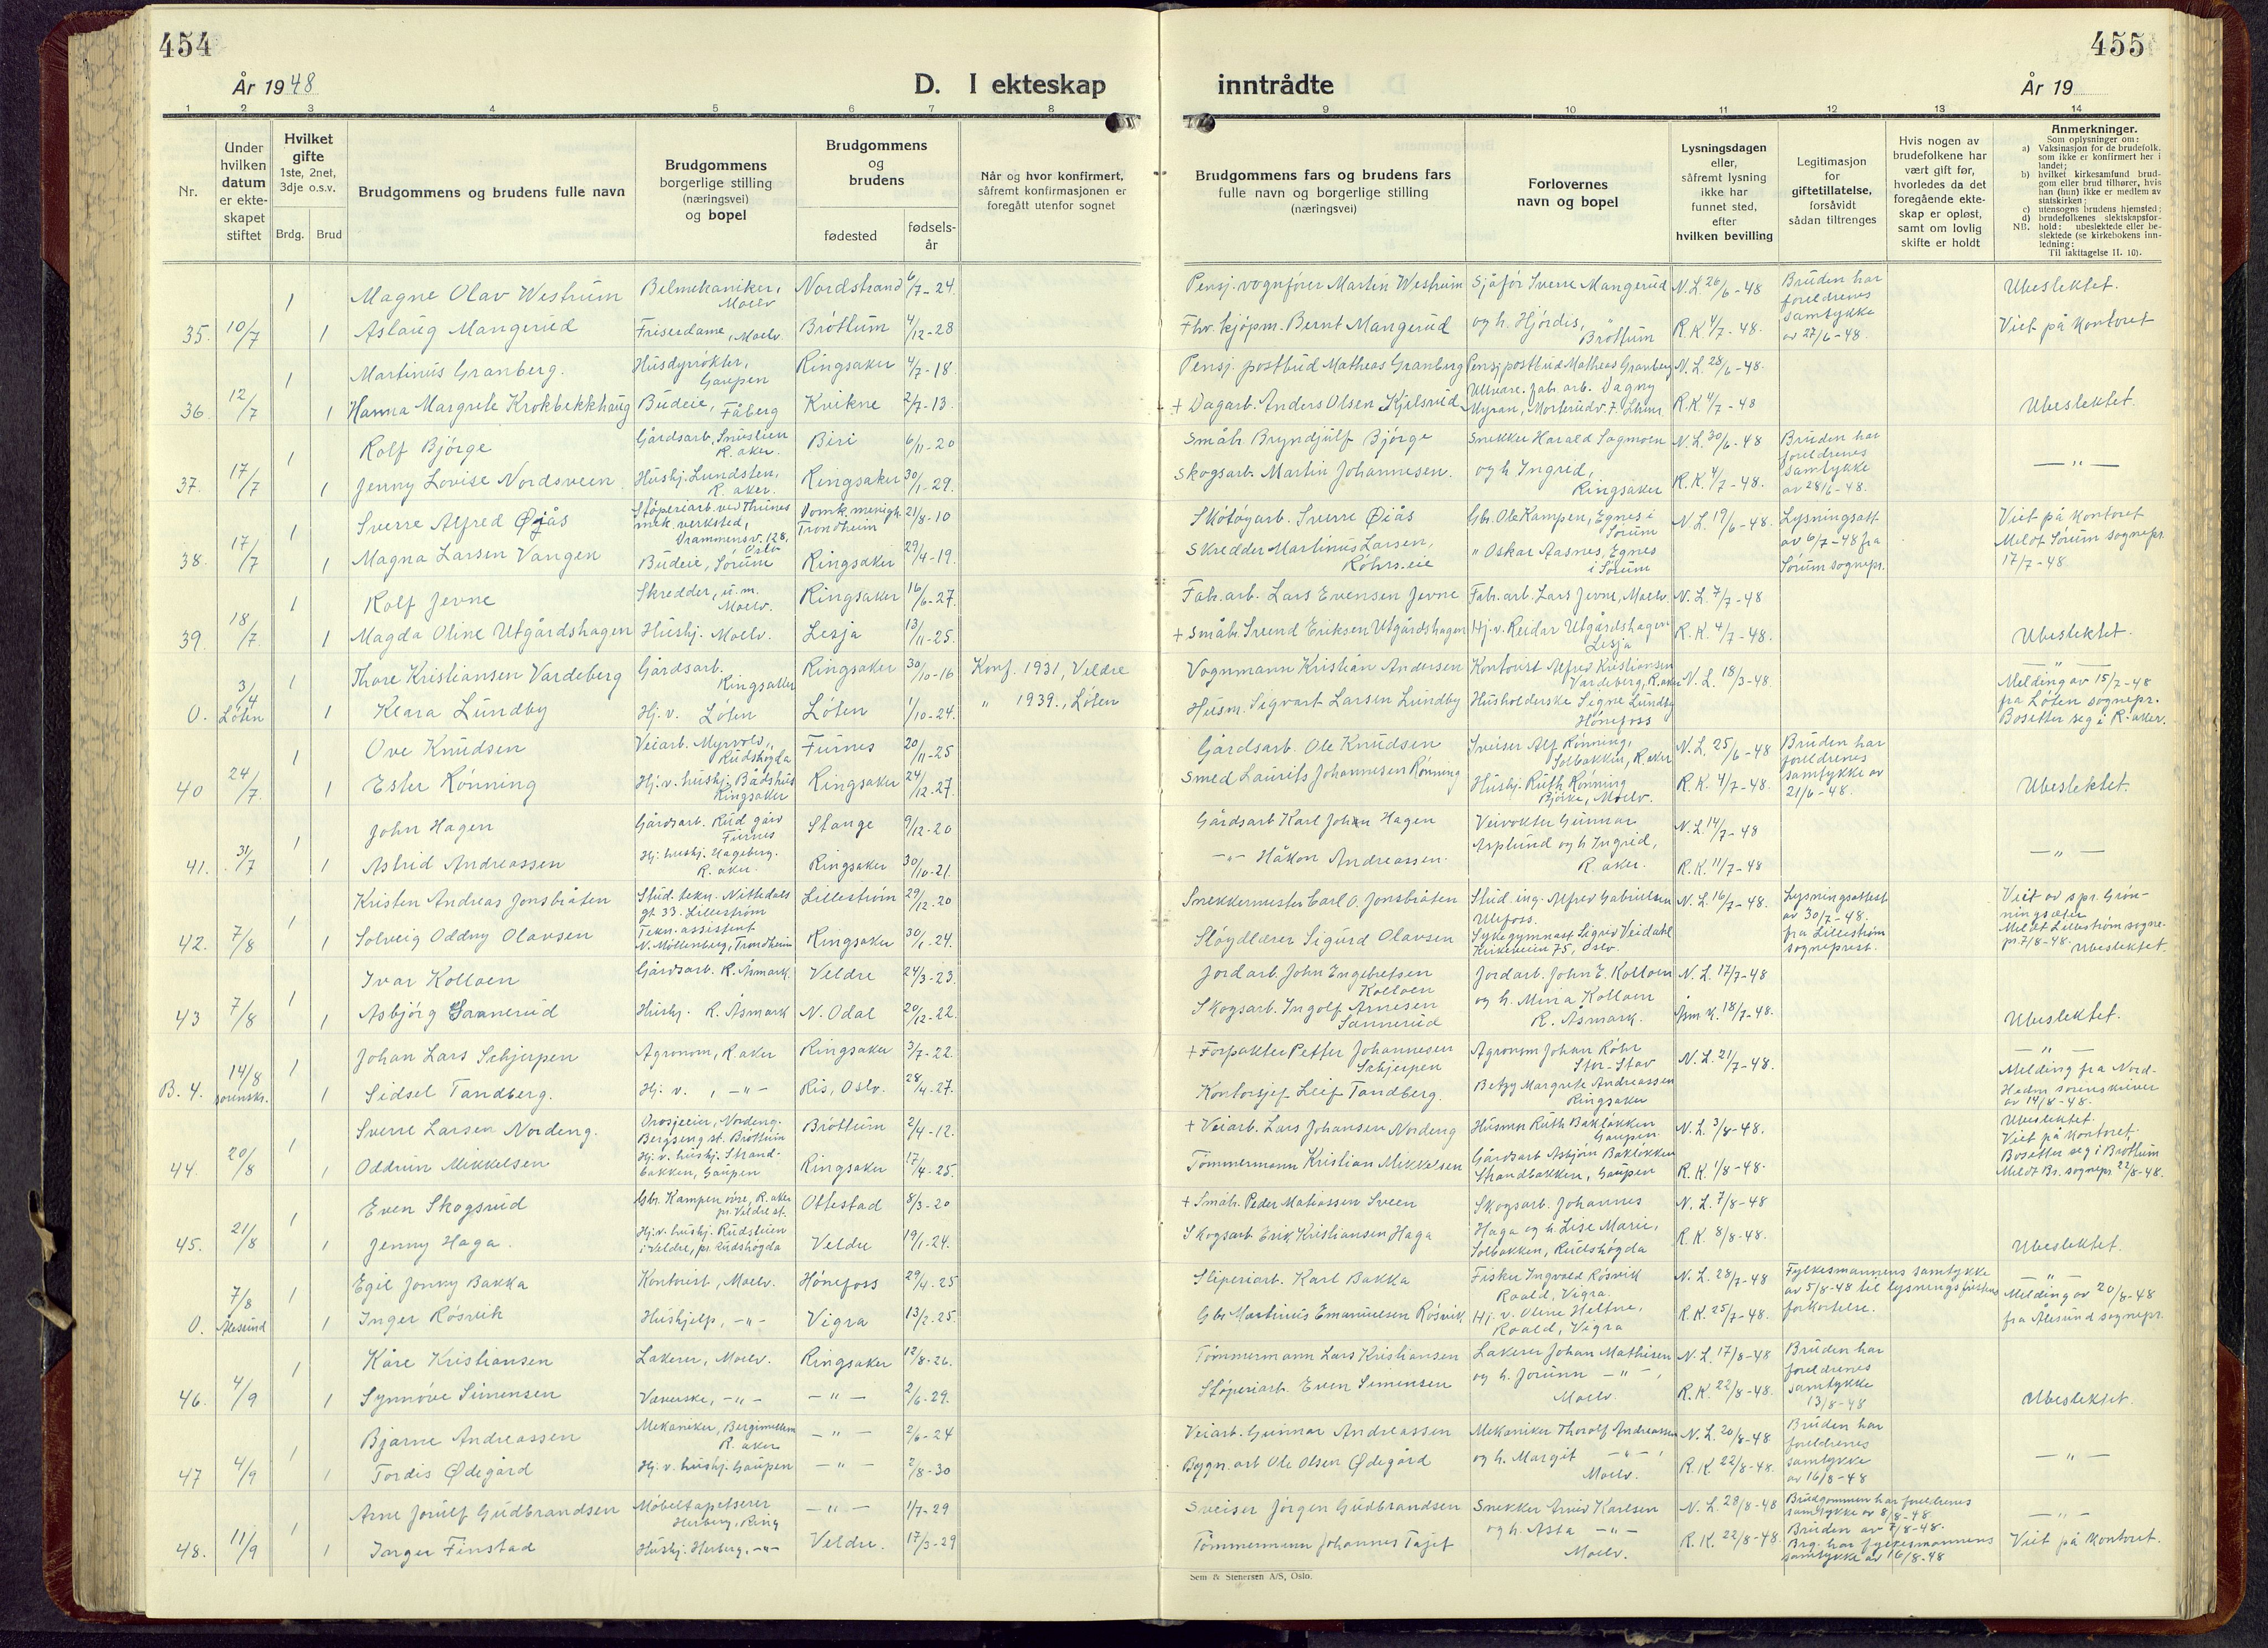 454
År 1948
D. I ekteskap
inntrådte
År 19
455
1 2 3 4 5 6 7 8 9 10 11 12 13 14
Nr.
Under hvilken datum er ekteskapet stiftet
Hvilket gifte 1ste, 2net, 3dje o.s.v.
Brdg. Brud
Brudgommens og brudens fulle navn
Brudgommens borgerlige stilling (næringsvei) og bopel
Brudgommens og brudens
fødested
fødselsår
Når og hvor konfirmert, såfremt konfirmasjonen er foregått utenfor sognet
Brudgommens fars og brudens fars fulle navn og borgerlige stilling (næringsvei)
Forlovernes navn og bopel
Lysningsdagen eller, såfremt lysning ikke har funnet sted, efter hvilken bevilling
Legitimasjon for giftetillatelse, forsåvidt sådan tiltrenges
Hvis nogen av brudefolkene har vært gift før, hvorledes da det foregående ekteskap er opløst, samt om lovlig skifte er holdt
Anmerkninger.
Som oplysninger om:
a) Vaksinasjon for de brudefolk, som ikke er konfirmert her i landet;
b) hvilket kirkesamfund brudgom eller brud tilhører, hvis han (hun) ikke er medlem av statskirken;
c) utensogns brudens hjemsted;
d) brudefolkenes slektskapsforhold: ubeslektede eller beslektede (se kirkebokens innledning:
NB.
Til iakttagelse II. 10).
1 Magne Olav Westrum Bilmekaniker, Moelv Nordstrand 6/7-24. Pensj. vognfører Martin Westrum Sjåfør Sverre Mangerud N.L. 26/6-48 Bruden har foreldrenes samtykke av 27/6-48. Ubeslektet.
35. 10/7 1 Aslaug Mangerud Friserdame, Moelv. Brøttum 4/12-28 Fhv. kjøpm. Bernt Mangerud og h. Hjørdis, Brøttum R.K. 4/7-48. Viet på kontoret
1 Martinus Granberg. Husdyrrøkter, Gaupen Ringsaker 4/7-18. Pensj. postbud Matheas Granberg Pensj. postbud Matheas Granberg N.L. 28/6-48.
36. 12/7 1 Hanna Margrete Krokbekkhaug Budeie, Fåberg Kvikne 2/7-13. + Dagarb. Anders Olsen Kjelsrud Ullvare. fabr. arb. Dagny Myran, R.K. 4/7-48 Ubeslektet.
1 Rolf Bjørge Gårdsarb. R.aker. Biri 6/11-20 Småbr. Bryndjulf Bjørge Snekker Harald Sagmoen N.L. 30/6-48 Bruden har foreldrenes samtykke av 28/6-48.
37. 17/7 1 Jenny Lovise Nordsveen Hushj. Lundsten, R.aker. Ringsaker 30/1-29. Skogsarb. Martin Johannesen. og h. Ingrid, Ringsaker R.K. 4/7-48. — " —
1 Sverre Alfred Øiås Støperiarb. ved Thunes mek. verksted, Drammensv. 128, Oslo Domk. menigh. Trondheim 21/8-10 Skotøyarb. Sverre Øiås Gbr. Ole Kampen, Egnes i Sørum N.L. 19/6-48. Lysningsatt. av 6/7-48 fra Sørum sognepr. Viet på kontoret
38. 17/7 1 Magna Larsen Vangen Budeie, Sørum Ringsaker 29/4-19. Skredder Martinus Larsen, Røhrs.eie " Oskar Aasnes, Egnes i Sørum Meldt Sørum sognepr. 17/7-48
1 Rolf Jevne Skredder, u.m. Moelv. Ringsaker 16/6-27. Fabr. arb. Lars Evensen Jevne Fabr. arb. Lars Jevne, Moelv. N.L. 7/7-48
39. 18/7 1 Magda Oline Utgårdshagen Hushj. Moelv. Lesja 13/11-25. + Småbr. Svend Eriksen Utgårdshagen Hj. v. Reidar Utgårdshagen Lesja R.K. 4/7-48. Ubeslektet.
1 Thore Kristiansen Vardeberg Gårdsarb. Ringsaker Ringsaker 30/10-16 Konf. 1931, Veldre Vognmann Kristian Andersen Kontorist Alfred Kristiansen Vardeberg, R.aker N.L. 18/3-48 "
0. 3/4 Løten 1 Klara Lundby Hj. v. Løten Løten 1/10-24. " 1939., Løten Husm. Sigvart Larsen Lundby Husholderske Signe Lundby Hønefoss Melding av 15/7-48 fra Løten sognepr. Bosetter seg i R.aker.
1 Ove Knudsen Veiarb. Myrvold, Rudshøgda Furnes 20/11-25 Gårdsarb. Ole Knudsen Sveiser Alf Rønning, Solbakken, R.aker N.L. 25/6-48 Bruden har foreldrenes samtykke av 21/6-48.
40 24/7 1 Ester Rønning Hj. v. hushj. Bådshus Ringsaker Ringsaker 24/12-27. Smed Laurits Johannesen Rønning Hushj. Ruth Rønning Bjørke, Moelv. R.K. 4/7-48. Ubeslektet.
1 John Hagen Gårdsarb. Rud gård Furnes Stange 9/12-20 Gårdsarb Karl Johan Hagen Veivokter Gunnar Asplund og h. Ingrid, R.aker. N.L. 14/7-48
41. 31/7 1 Astrid Andreassen Hj. hushj. Hageberg. R.aker. Ringsaker 30/10-21. — " — Håkon Andreassen. R.K. 11/7-48 — " —
1 Kristen Andreas Jonsbråten Stud. tekn. Nittedals gt 33. Lillestrøm Lillestrøm 29/12-20 Snekkermester Carl O. Jonsbråten Stud. ing. Alfred Gabrielsen Ulefoss. N.L. 16/7-48. Lysningsattest av 30/7-48. fra Lillestrøm sogneprest. Viet av spr. Grønningsæter
42. 7/8 1 Solveig Oddny Olavsen Tekn. assistent N. Møllenberg, Trondheim Ringsaker 30/1-24. Sløydlærer Sigurd Olavsen Sykegymnast Sigrid Veidahl Kirkeveien 75, Oslo. Meldt Lillestrøm sognepr. 7/8-48. Ubeslektet.
1 Ivar Kolloen Gårdsarb. R. Åsmark. Veldre 24/3-23. Jordarb. John Engebretsen Kolloen Jordarb. John E. Kolloen N.L. 17/7-48
43 7/8 1 Asbjørg Sannerud Hushj. R. Åsmark N. Odal 20/12-22. Skogsarb. Ingolf Arnesen Sannerud og h. Mina Kolloen R. Åsmark. Åsm. K. 18/7-48. Ubeslektet.
1 Johan Lars Schjerpen Agronom, R.aker Ringsaker 3/7-22. + Forpakter Petter Johannesen Schjerpen Agronom Johan Røhr Stor-Stav N.L. 21/7-48. — " —
B. 4. 14/8 sorenskr. 1 Sidsel Tandberg. Hj. v. , — " — Ris, Oslo. 28/4-27. Kontorsjef Leif Tandberg. Betzy Margrete Andreassen Ringsaker Melding fra Nord-Hedm sorenskriver av 14/8-48.
1 Sverre Larsen Nordeng. Drosjeeier, Nordeng. Bergseng st. Brøttum Brøttum 2/4-12. + Veiarb. Lars Johansen Nordeng Husmor Ruth Bakløkken Gaupen N.L. 3/8-48. Ubeslektet. Viet på kontoret.
44. 20/8 1 Oddrun Mikkelsen Hj. v. hushj. Strandbakken, Gaupen Ringsaker 17/4-25. Tømmermann Kristian Mikkelsen Gårdsarb Asbjørn Bakløkken Strandbakken, Gaupen R.K. 1/8-48. Bosetter seg i Brøttum Meldt Br. sognepr. 22/8-48.
1 Even Skogsrud Gbr. Kampen øvre, R.aker pr. Veldre st. Ottestad 8/3-20 + Småbr. Peder Matiassen Sveen Skogsarb. Johannes N.L. 7/8-48
45. 21/8 1 Jenny Haga. Hj. v. hushj. Rudsteien i Veldre, pr. Rudshøgda Veldre 19/1-24. Skogsarb Erik Kristiansen Haga Haga og h. Lise Marie, Solbakken, Rudshøgda R.K. 8/8-48. Ubeslektet.
1 Egil Jonny Bakka Kontorist, Moelv. Hønefoss 29/4-25 Sliperiarb. Karl Bakka Fisker Ingvald Røsvik Roald, Vigra. N.L. 28/7-48 Fylkesmannens samtykke av 5/8-48 til lysningsfristens forkortelse. — " —
0. 7/8 Ålesund 1 Inger Røsvik Hushjelp, — " — Vigra 13/2-25. Gbr Martinus Emanuelsen Røsvik Hj. v. Oline Heltne, Roald, Vigra R.K. 25/7-48. Melding av 20/8-48 fra Ålesund sognepr.
1 Kåre Kristiansen Lakerer, Moelv. Ringsaker 12/8-26. Tømmermann Lars Kristiansen Lakerer Johan Mathisen N.L. 17/8-48 Bruden har foreldrenes samtykke 13/8-48
46. 4/9 1 Synnøve Simensen Veverske, — " — — " — 2/6-29. Støperiarb. Even Simensen og h. Jorunn — " —, Moelv. R.K. 22/8-48. Ubeslektet.
1 Bjarne Andreassen Mekaniker, R.aker — " — 2/6-24 Veiarb. Gunnar Andreassen Mekaniker Thorolf Andreassen N.L. 20/8-48. Bruden har foreldrenes samtykke av 16/8-48
47 4/9 1 Tordis Ødegård Hj. v. hushj. Gaupen — " — 2/8-30 Bygn. arb Ole Olsen Ødegård og h. Margit — " —, Moelv. R.K. 22/8-48. — " —
1 Arne Jorulf Gudbrandsen Møbeltapetserer Herberg, Ring — " — 1/7-29 Sveiser Jørgen Gudbrandsen Snekker Arvid Karlsen N.L. 28/8-48 Brudgommen har foreldrenes samtykke av 8/8-48. — " —
48. 11/9 1 Inger Finstad Hushj. Herberg, — " — Veldre. 17/3-29 Tømmermann Johannes Tajet og h. Asta — " — Moelv. R.K. 22/8-48. Bruden av 7/8-48. Brg. har fylkesmannens samtykke av 16/8-48 Viet på kontoret.
Sem & Stenersen A/S, Oslo.